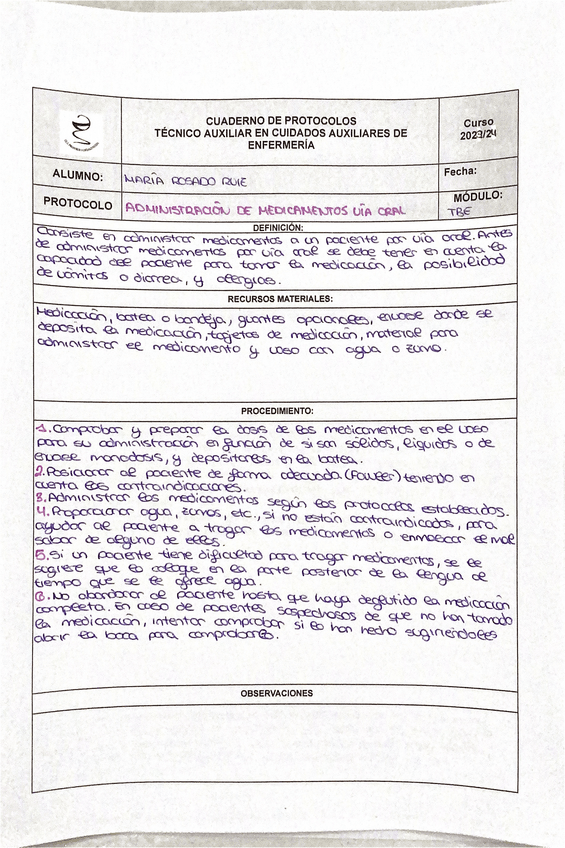 CUADERNO DE PROTOCOLOS
TÉCNICO AUXILIAR EN CUIDADOS AUXILIARES DE
ENFERMERÍA
Curso
2023/24
ALUMNO:
MARÍA ROSADO RUIE
Fecha:
PROTOCOLO
ADMINISTRACIÓN DE MEDICAMENTOS VÍA ORAL
MÓDULO:
TBE
DEFINICIÓN:
Consiste en administrar medicamentos a un paciente por vía oral. Antes
de administrar medicamentos por vía oral se debe tener en cuenta la
capacidad del paciente para tomar la medicación, la posibilidad
de vómitos o diarrea, y alergias.
RECURSOS MATERIALES:
Medicación, batea o bandeja, guantes opcionales, envase donde se
deposita la medicación, tarjetas de medicación, material para
administrar el medicamento y vaso con agua o zumo.
PROCEDIMIENTO:
1. Comprobar y preparar la dosis de los medicamentos en el vaso
para su administración en función de si son sólidos, líquidos o de
envase monodosis, y depositarlos en la batea.
2. Posicionar al paciente de forma adecuada (Fowler) teniendo en
cuenta las contraindicaciones.
3. Administrar los medicamentos según los protocolos establecidos.
4. Proporcionar agua, zumos, etc., si no están contraindicados, para
ayudar al paciente a tragar los medicamentos o enmascar el mal
sabor de alguno de ellos.
5. Si un paciente tiene dificultad para tragar medicamentos, se le
sugiere que lo coloque en la parte posterior de la lengua al
tiempo que se le ofrece agua.
6. No abandonar al paciente hasta que haya deglutido la medicación
completa. En caso de pacientes sospechosos de que no han tomado
la medicación, intentar comprobar si lo han hecho sugiriéndoles
abrir la boca para comprobarlo.
OBSERVACIONES